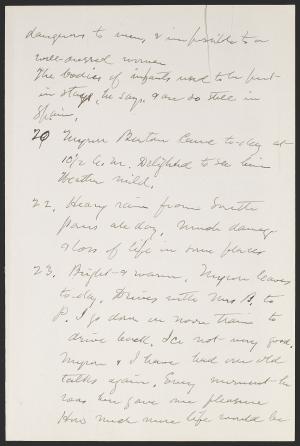 dangerous to men, & impossible to a
well-dressed woman
The bodies of infants used to be put
in stays, he says & are so still in
Spain.
20 Myron Benton came to-day at
10½ A.M. Delighted to see him
Weather mild.
22. Heavy rain from South
pours all day, much damage
& loss of life in some places
23. Bright & warm. Myron leaves
to-day. Drives with Mrs B. to
P. I go down on noon train to
drive back. Ice not very good.
Myron & I have had our old
talks again. Every moment he
was here gave me pleasure
How much more life would be